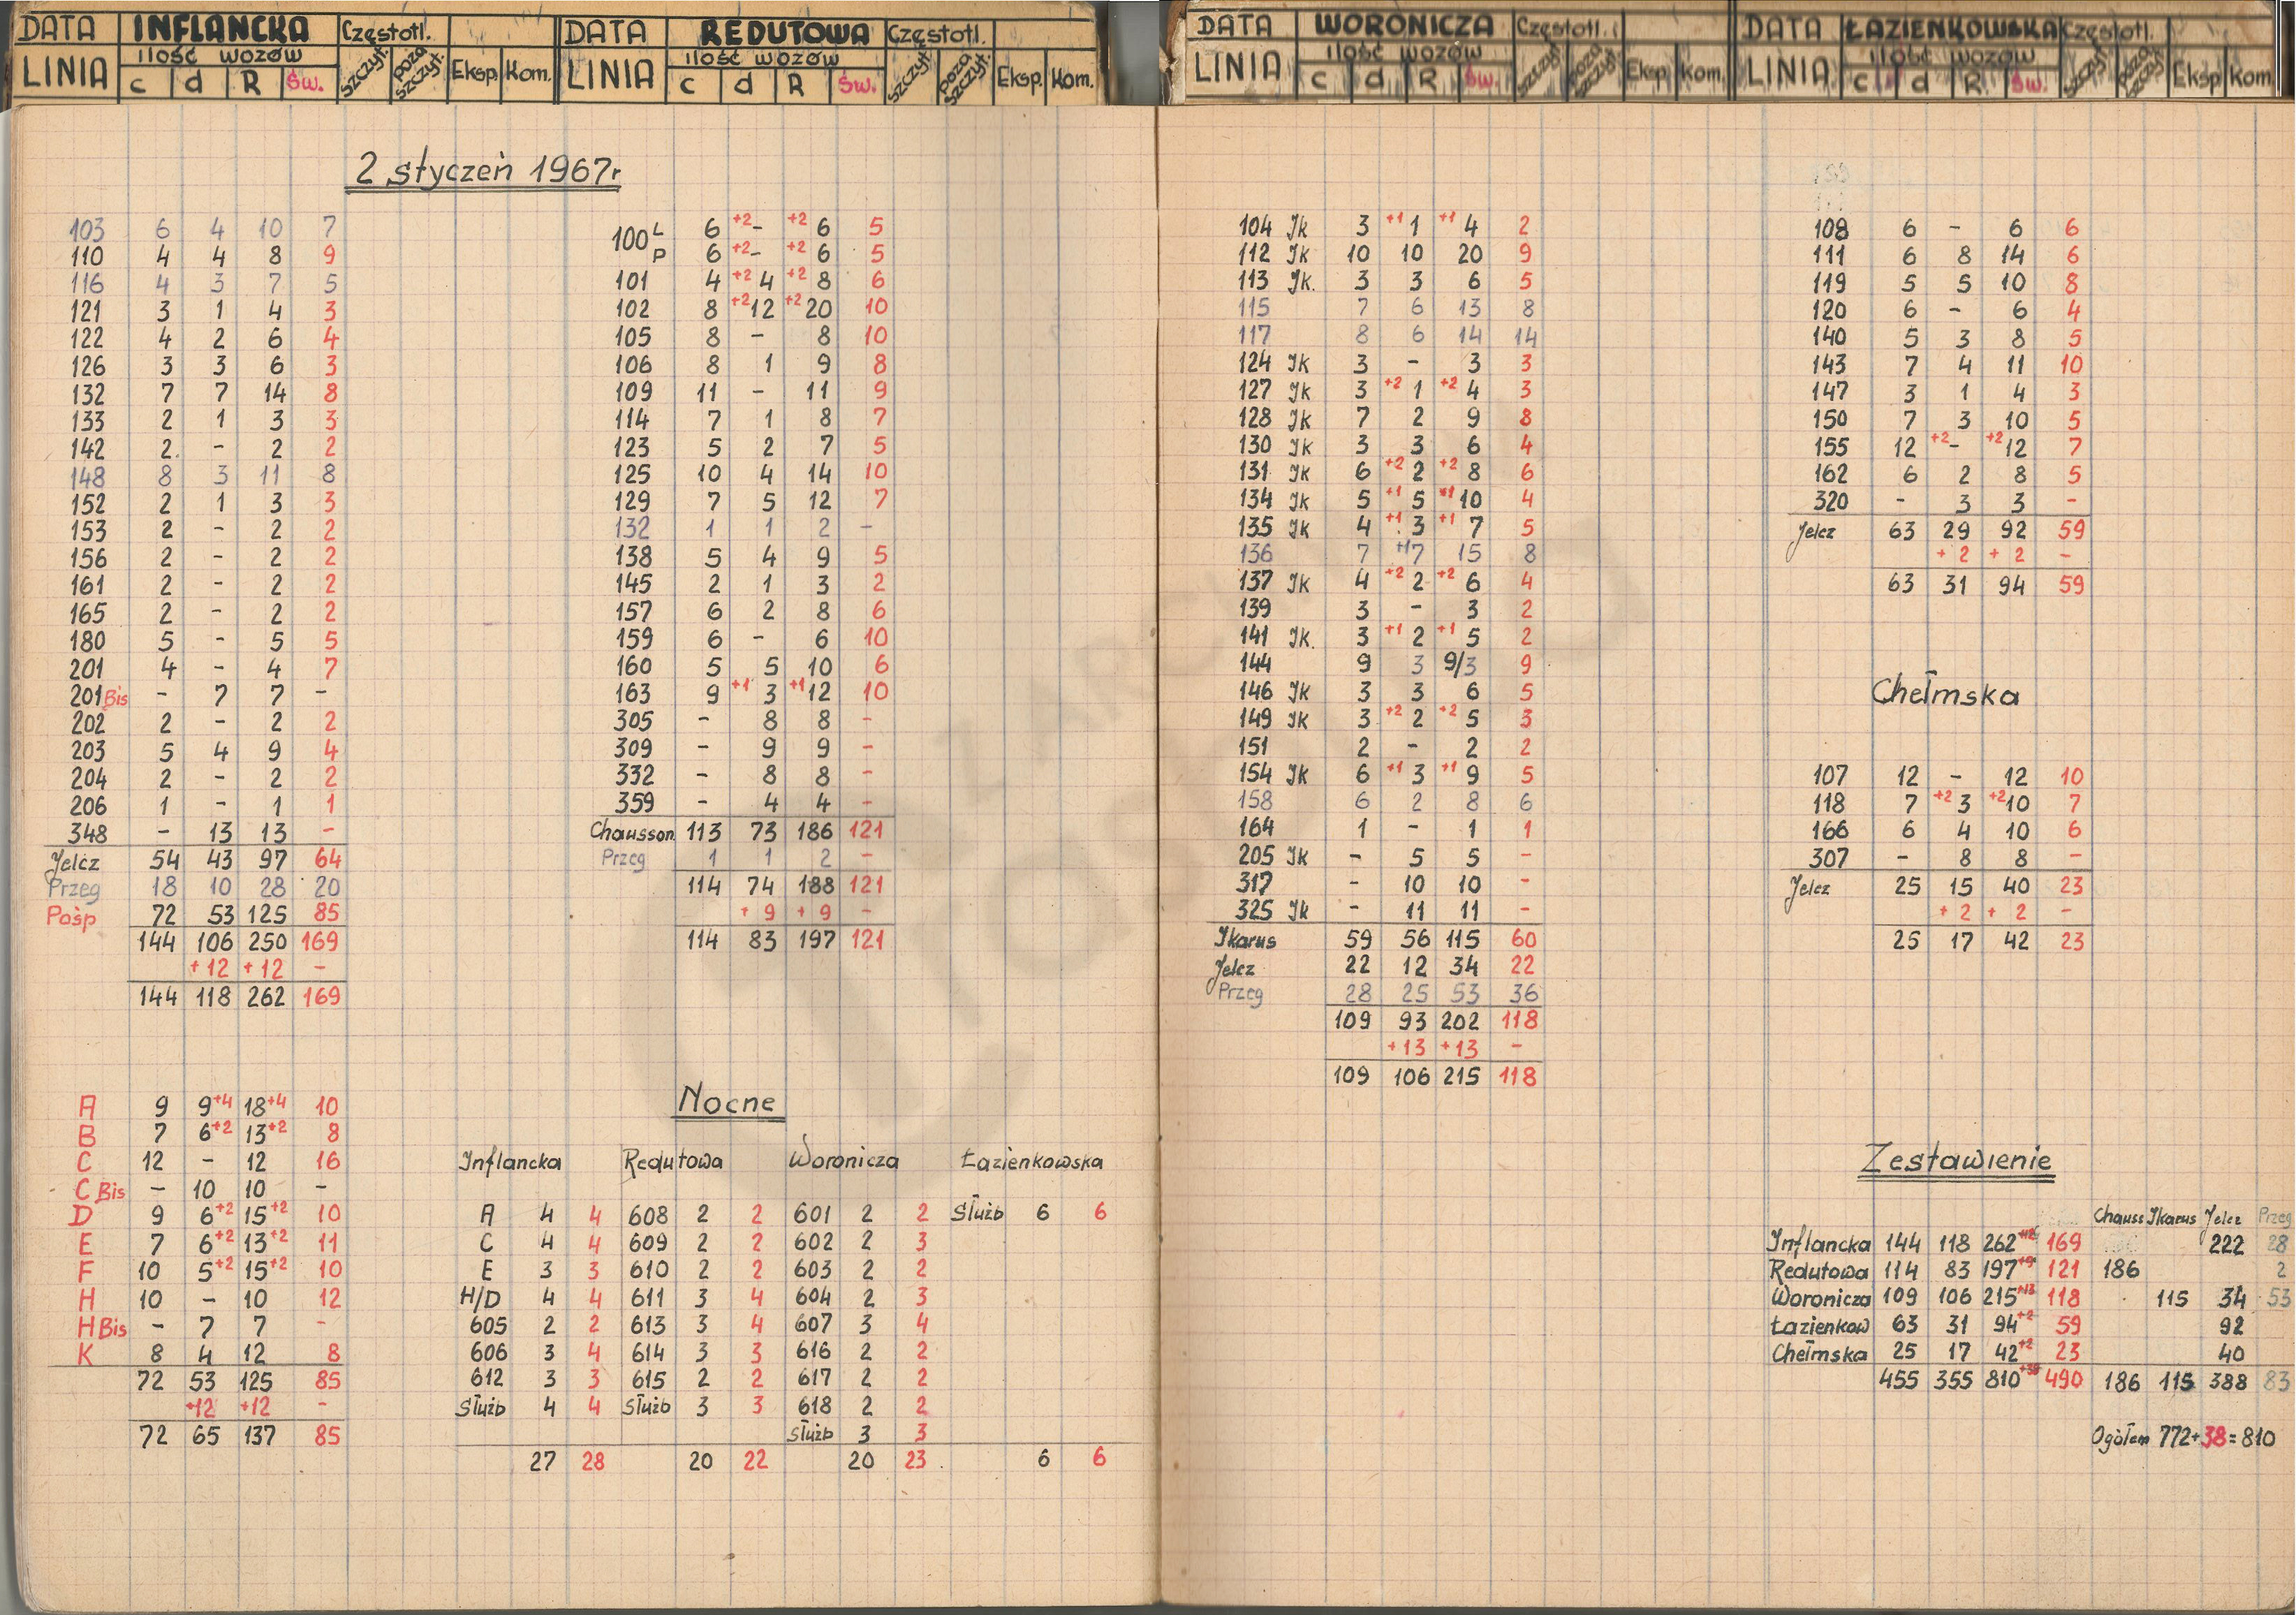 DATA INFLANCKA Częstotl.
LINIA ilość wozów szczyt. poza szczyt. Eksp. Kom.
c d R Św.
DATA REDUTOWA Częstotl.
LINIA ilość wozów szczyt. poza szczyt. Eksp. Kom.
c d R Św.
DATA WORONICZA Częstotl.
LINIA ilość wozów szczyt. poza szczyt. Eksp. Kom.
c d R Św.
DATA ŁAZIENKOWSKA Częstotl.
LINIA ilość wozów szczyt. poza szczyt. Eksp Kom.
c d R Św.
2 styczeń 1967r
103 6 4 10 7
110 4 4 8 9
116 4 3 7 5
121 3 1 4 3
122 4 2 6 4
126 3 3 6 3
132 7 7 14 8
133 2 1 3 3
142 2. - 2 2
148 8 3 11 8
152 2 1 3 3
153 2 - 2 2
156 2 - 2 2
161 2 - 2 2
165 2 - 2 2
180 5 - 5 5
201 4 - 4 7
201 Bis - 7 7 -
202 2 - 2 2
203 5 4 9 4
204 2 - 2 2
206 1 - 1 1
348 - 13 13 -
Jelcz 54 43 97 64
Przeg 18 10 28 20
Pośp 72 53 125 85
144 106 250 169
+12 +12 -
144 118 262 169
A 9 9+4 18+4 10
B 7 6+2 13+2 8
C 12 - 12 16
C Bis - 10 10 -
D 9 6+2 15+2 10
E 7 6+2 13+2 11
F 10 5+2 15+2 10
H 10 - 10 12
H Bis - 7 7 -
K 8 4 12 8
72 53 125 85
+12 +12 -
72 65 137 85
100 L 6 +2 - +2 6 5
P 6 +2 - +2 6 5
101 4 +2 4 +2 8 6
102 8 +2 12 +2 20 10
105 8 - 8 10
106 8 1 9 8
109 11 - 11 9
114 7 1 8 7
123 5 2 7 5
125 10 4 14 10
129 7 5 12 7
132 1 1 2 -
138 5 4 9 5
145 2 1 3 2
157 6 2 8 6
159 6 - 6 10
160 5 5 10 6
163 9 +1 3 +1 12 10
305 - 8 8 -
309 - 9 9 -
332 - 8 8 -
359 - 4 4 -
Chausson 113 73 186 121
Przeg 1 1 2 -
114 74 188 121
+9 +9 -
114 83 197 121
Nocne
Inflancka Redutowa Woronicza Łazienkowska
A 4 4 608 2 2 601 2 2 Służb 6 6
C 4 4 609 2 2 602 2 3
E 3 3 610 2 2 603 2 2
H/D 4 4 611 3 4 604 2 3
605 2 2 613 3 4 607 3 4
606 3 4 614 3 3 616 2 2
612 3 3 615 2 2 617 2 2
Służb 4 4 Służb 3 3 618 2 2
Służb 3 3
27 28 20 22 20 23 6 6
104 Jk 3 +1 1 +1 4 2
112 Jk 10 10 20 9
113 Jk. 3 3 6 5
115 7 6 13 8
117 8 6 14 14
124 Jk 3 - 3 3
127 Jk 3 +2 1 +2 4 3
128 Jk 7 2 9 8
130 Jk 3 3 6 4
131 Jk 6 +2 2 +2 8 6
134 Jk 5 +1 5 +1 10 4
135 Jk 4 +1 3 +1 7 5
136 7 +1 7 15 8
137 Jk 4 +2 2 +2 6 4
139 3 - 3 2
141 Jk. 3 +1 2 +1 5 2
144 9 3 9/3 9
146 Jk 3 3 6 5
149 Jk 3 +2 2 +2 5 3
151 2 - 2 2
154 Jk 6 +1 3 +1 9 5
158 6 2 8 6
164 1 - 1 1
205 Jk - 5 5 -
317 - 10 10 -
325 Jk - 11 11 -
Ikarus 59 56 115 60
Jelcz 22 12 34 22
Przeg 28 25 53 36
109 93 202 118
+13 +13 -
109 106 215 118
108 6 - 6 6
111 6 8 14 6
119 5 5 10 8
120 6 - 6 4
140 5 3 8 5
143 7 4 11 10
147 3 1 4 3
150 7 3 10 5
155 12 +2 - +2 12 7
162 6 2 8 5
320 - 3 3 -
Jelcz 63 29 92 59
+2 +2 -
63 31 94 59
Chełmska
107 12 - 12 10
118 7 +2 3 +2 10 7
166 6 4 10 6
307 - 8 8 -
Jelcz 25 15 40 23
+2 +2 -
25 17 42 23
Zestawienie
Chauss Ikarus Jelcz Przeg
Inflancka 144 118 262+12 169 222 28
Redutowa 114 83 197+9 121 186 2
Woronicza 109 106 215+13 118 115 34 53
Łazienkow 63 31 94+2 59 92
Chełmska 25 17 42+2 23 40
455 355 810+38 490 186 115 388 83
Ogółem 772+38=810